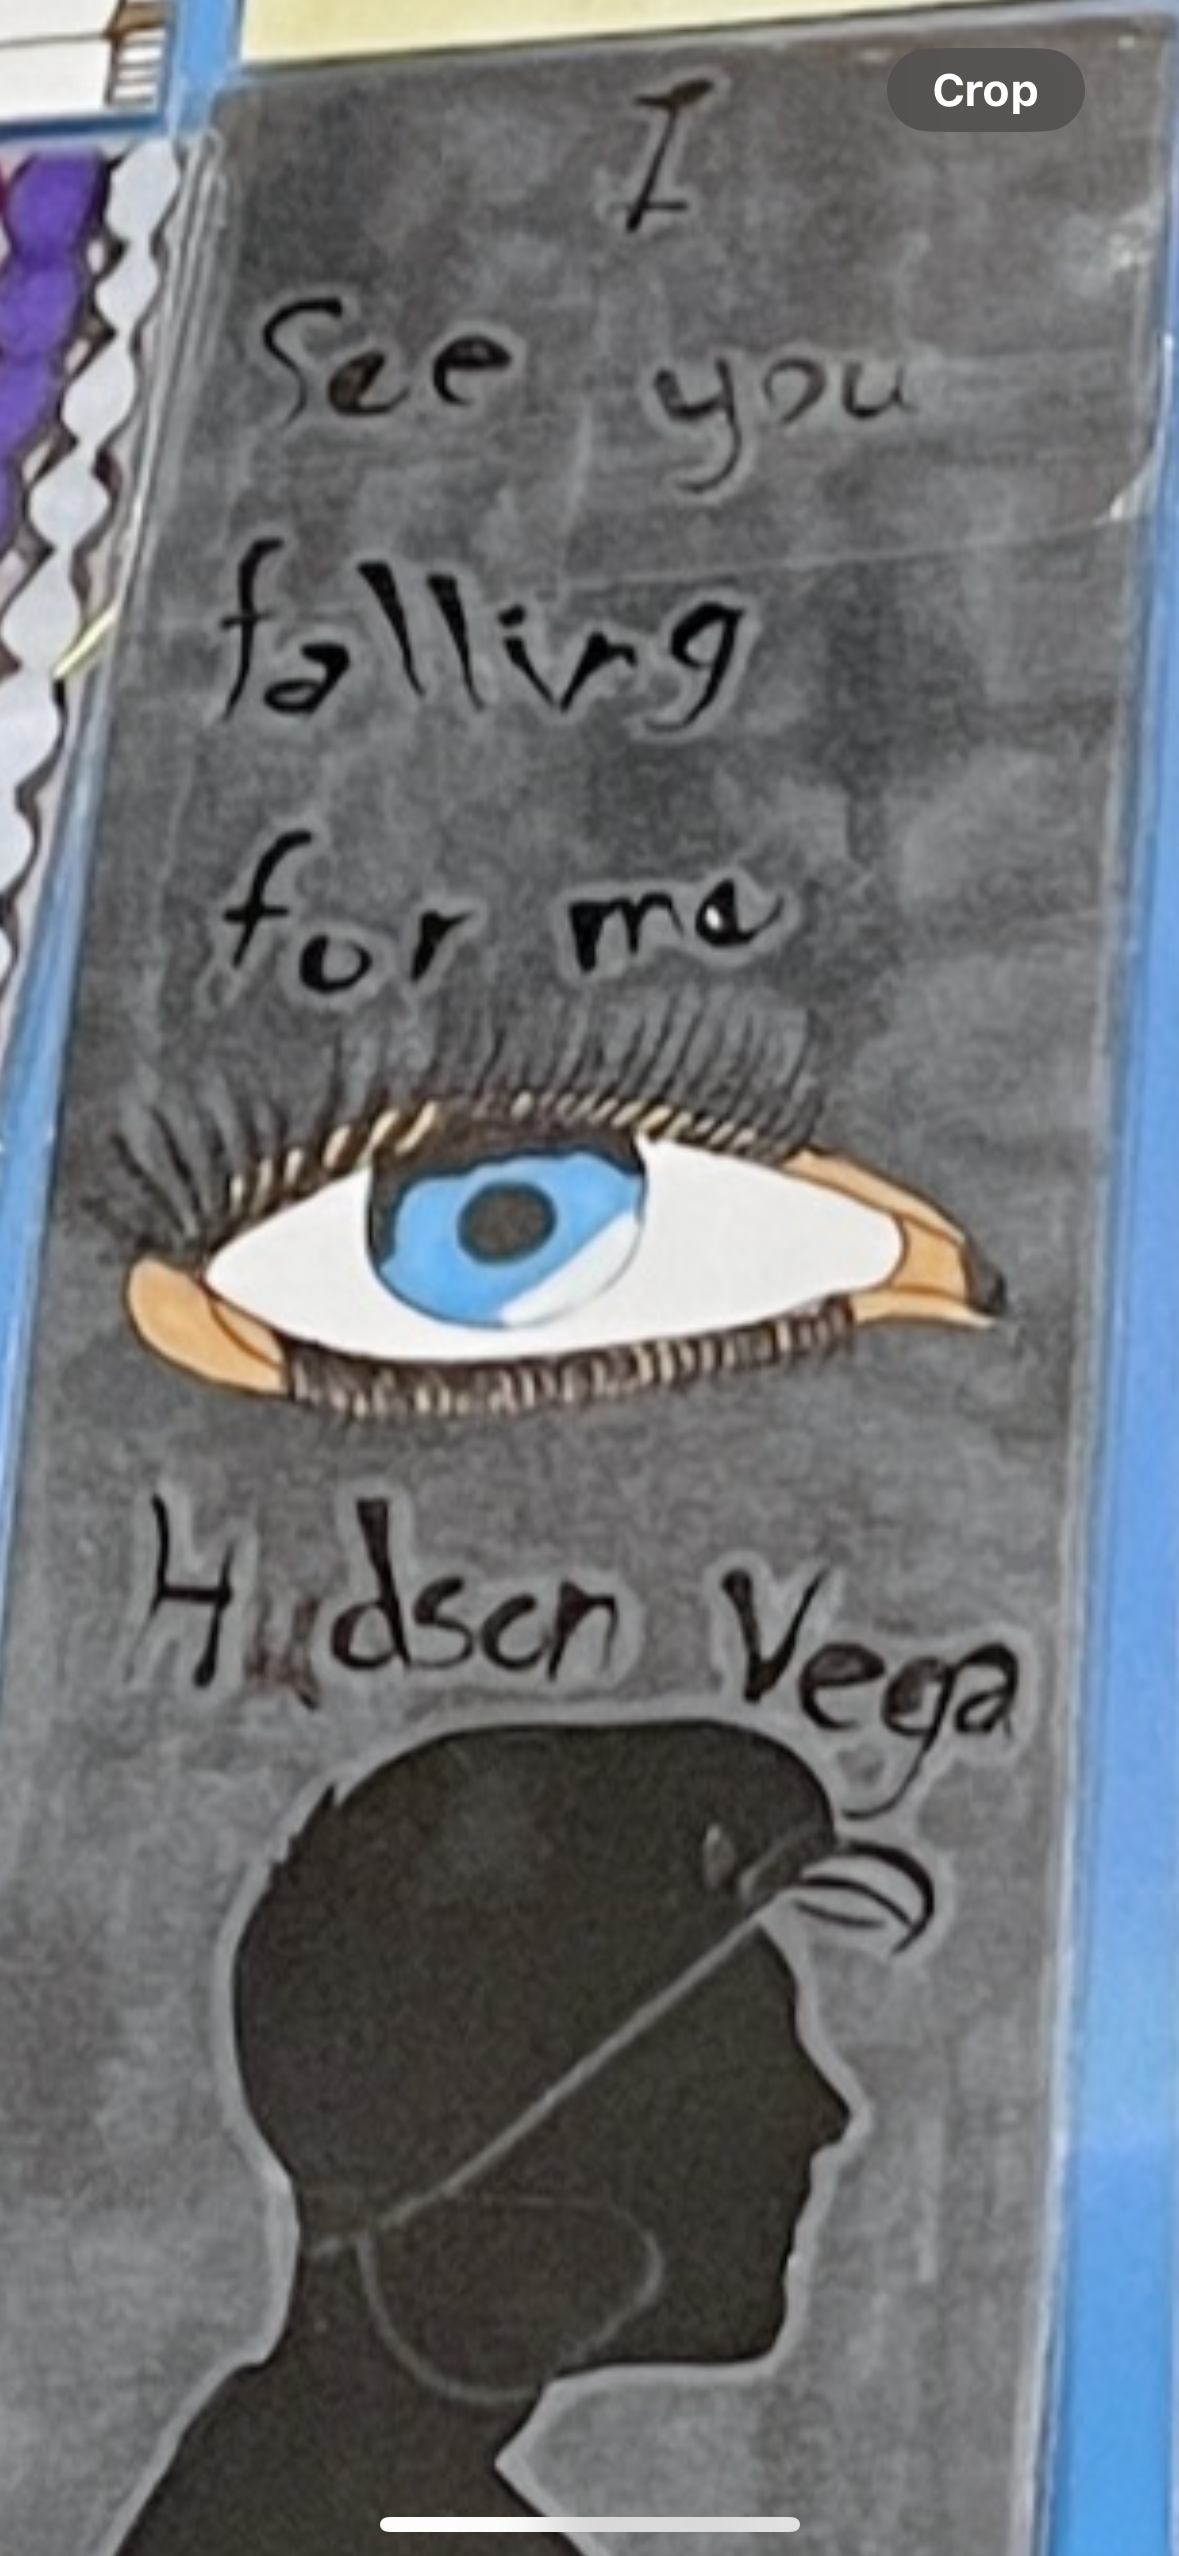 Crop
I
See you
falling
for me
Hudson Vega